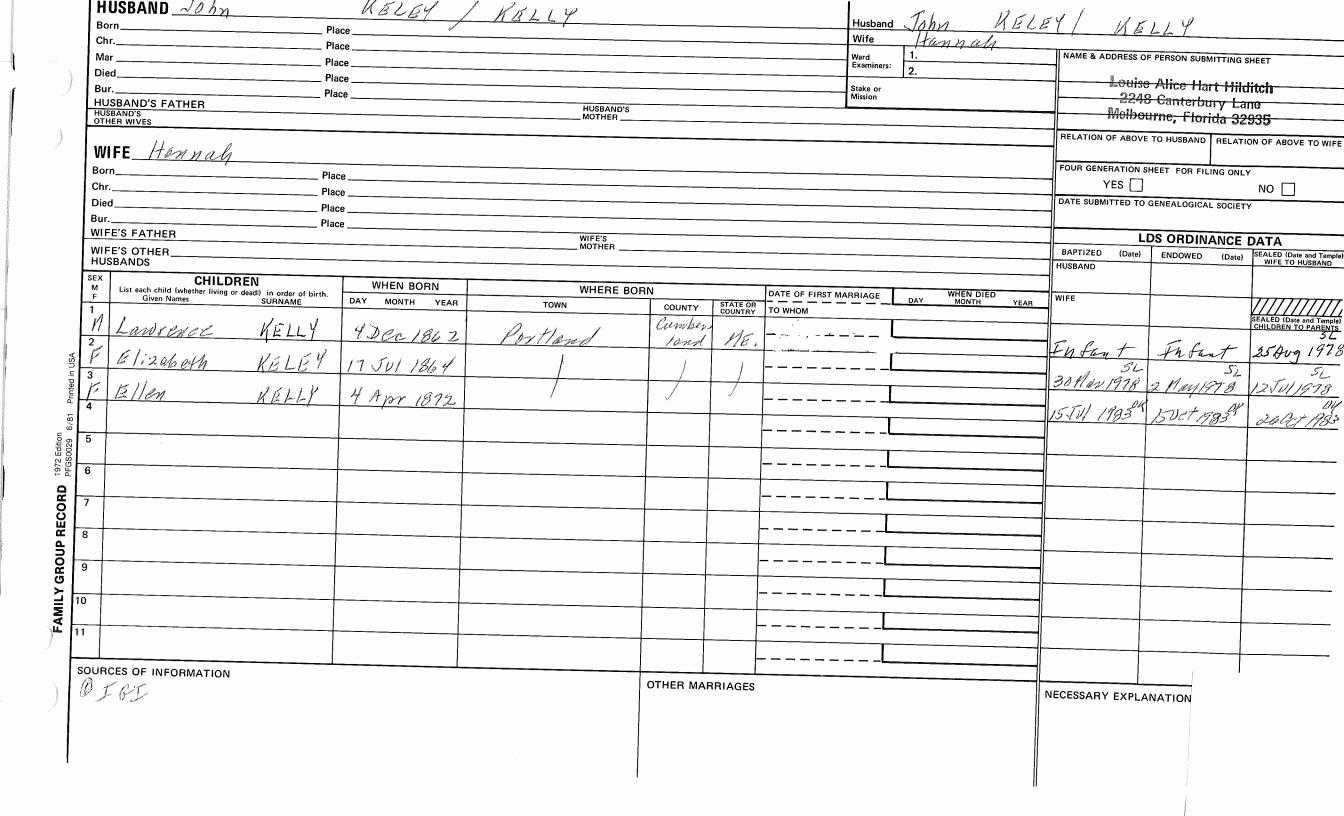 HUSBAND John KELEY / KELLY
Born Place
Chr. Place
Mar Place
Died Place
Bur. Place
HUSBAND'S FATHER HUSBAND'S MOTHER
HUSBAND'S OTHER WIVES
Husband John KELEY / KELLY
Wife Hannah
Ward Examiners: 1.
2.
Stake or Mission
NAME & ADDRESS OF PERSON SUBMITTING SHEET
Louise Alice Hart Hilditch
2248 Canterbury Lane
Melbourne, Florida 32935
RELATION OF ABOVE TO HUSBAND RELATION OF ABOVE TO WIFE
FOUR GENERATION SHEET FOR FILING ONLY
YES NO
DATE SUBMITTED TO GENEALOGICAL SOCIETY
WIFE Hannah
Born Place
Chr. Place
Died Place
Bur. Place
WIFE'S FATHER WIFE'S MOTHER
WIFE'S OTHER HUSBANDS
LDS ORDINANCE DATA
BAPTIZED (Date) ENDOWED (Date) SEALED (Date and Temple) WIFE TO HUSBAND
HUSBAND
WIFE
SEALED (Date and Temple) CHILDREN TO PARENTS
SEX M F
CHILDREN
List each child (whether living or dead) in order of birth.
Given Names SURNAME
WHEN BORN
DAY MONTH YEAR
WHERE BORN
TOWN COUNTY STATE OR COUNTRY
DATE OF FIRST MARRIAGE
TO WHOM
WHEN DIED
DAY MONTH YEAR
1 M Lawrence KELLY 4 Dec 1862 Portland Cumberland ME. Infant Infant 25 Aug 1978 SL
2 F Elizabeth KELEY 17 Jul 1864 30 Mar 1978 SL 2 May 1978 SL 12 Jul 1978 SL
3 F Ellen KELLY 4 Apr 1872 15 Jul 1983 15 Oct 1983 Oct 1983
4
5
6
7
8
9
10
11
SOURCES OF INFORMATION
IGI
OTHER MARRIAGES
NECESSARY EXPLANATION
FAMILY GROUP RECORD
1972 Edition
PFGS0029 6/81 Printed in USA